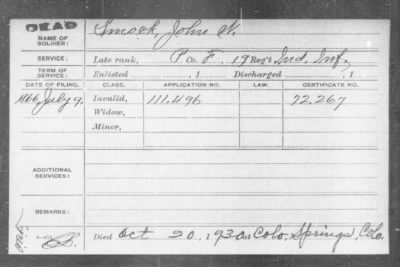 DEAD
NAME OF SOLDIER: Smock, John N.
SERVICE: Late rank, P Co. F, 19 Reg't Ind. Inf.,
TERM OF SERVICE: Enlisted , 1 Discharged , 1
DATE OF FILING. CLASS. APPLICATION NO. LAW. CERTIFICATE NO.
1866, July 9, Invalid, 111.496 72.267
Widow,
Minor,
ADDITIONAL SERVICES:
REMARKS:
Died Oct 20, 1930 at Colo. Springs, Colo.